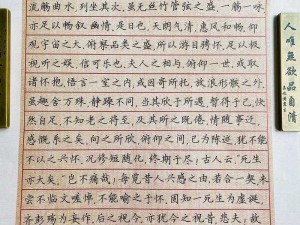 流觞曲水，列坐其次。虽无丝竹管弦之盛，一觞一咏，
亦足以畅叙幽情。是日也，天朗气清，惠风和畅，仰
观宇宙之大，俯察品类之盛，所以游目骋怀，足以极
视听之娱，信可乐也。夫人之相与，俯仰一世，或取
诸怀抱，悟言一室之内；或因寄所托，放浪形骸之外。
虽趣舍万殊，静躁不同，当其欣于所遇，暂得于己，快
然自足，不知老之将至。及其所之既倦，情随事迁，
感慨系之矣。向之所欣，俯仰之间，已为陈迹，犹不能
不以之兴怀。况修短随化，终期于尽。古人云："死生
亦大矣。"岂不痛哉！每览昔人兴感之由，若合一契，未
尝不临文嗟悼，不能喻之于怀。固知一死生为虚诞，
齐彭殇为妄作。后之视今，亦犹今之视昔。悲夫！故
人唯無欲品自清